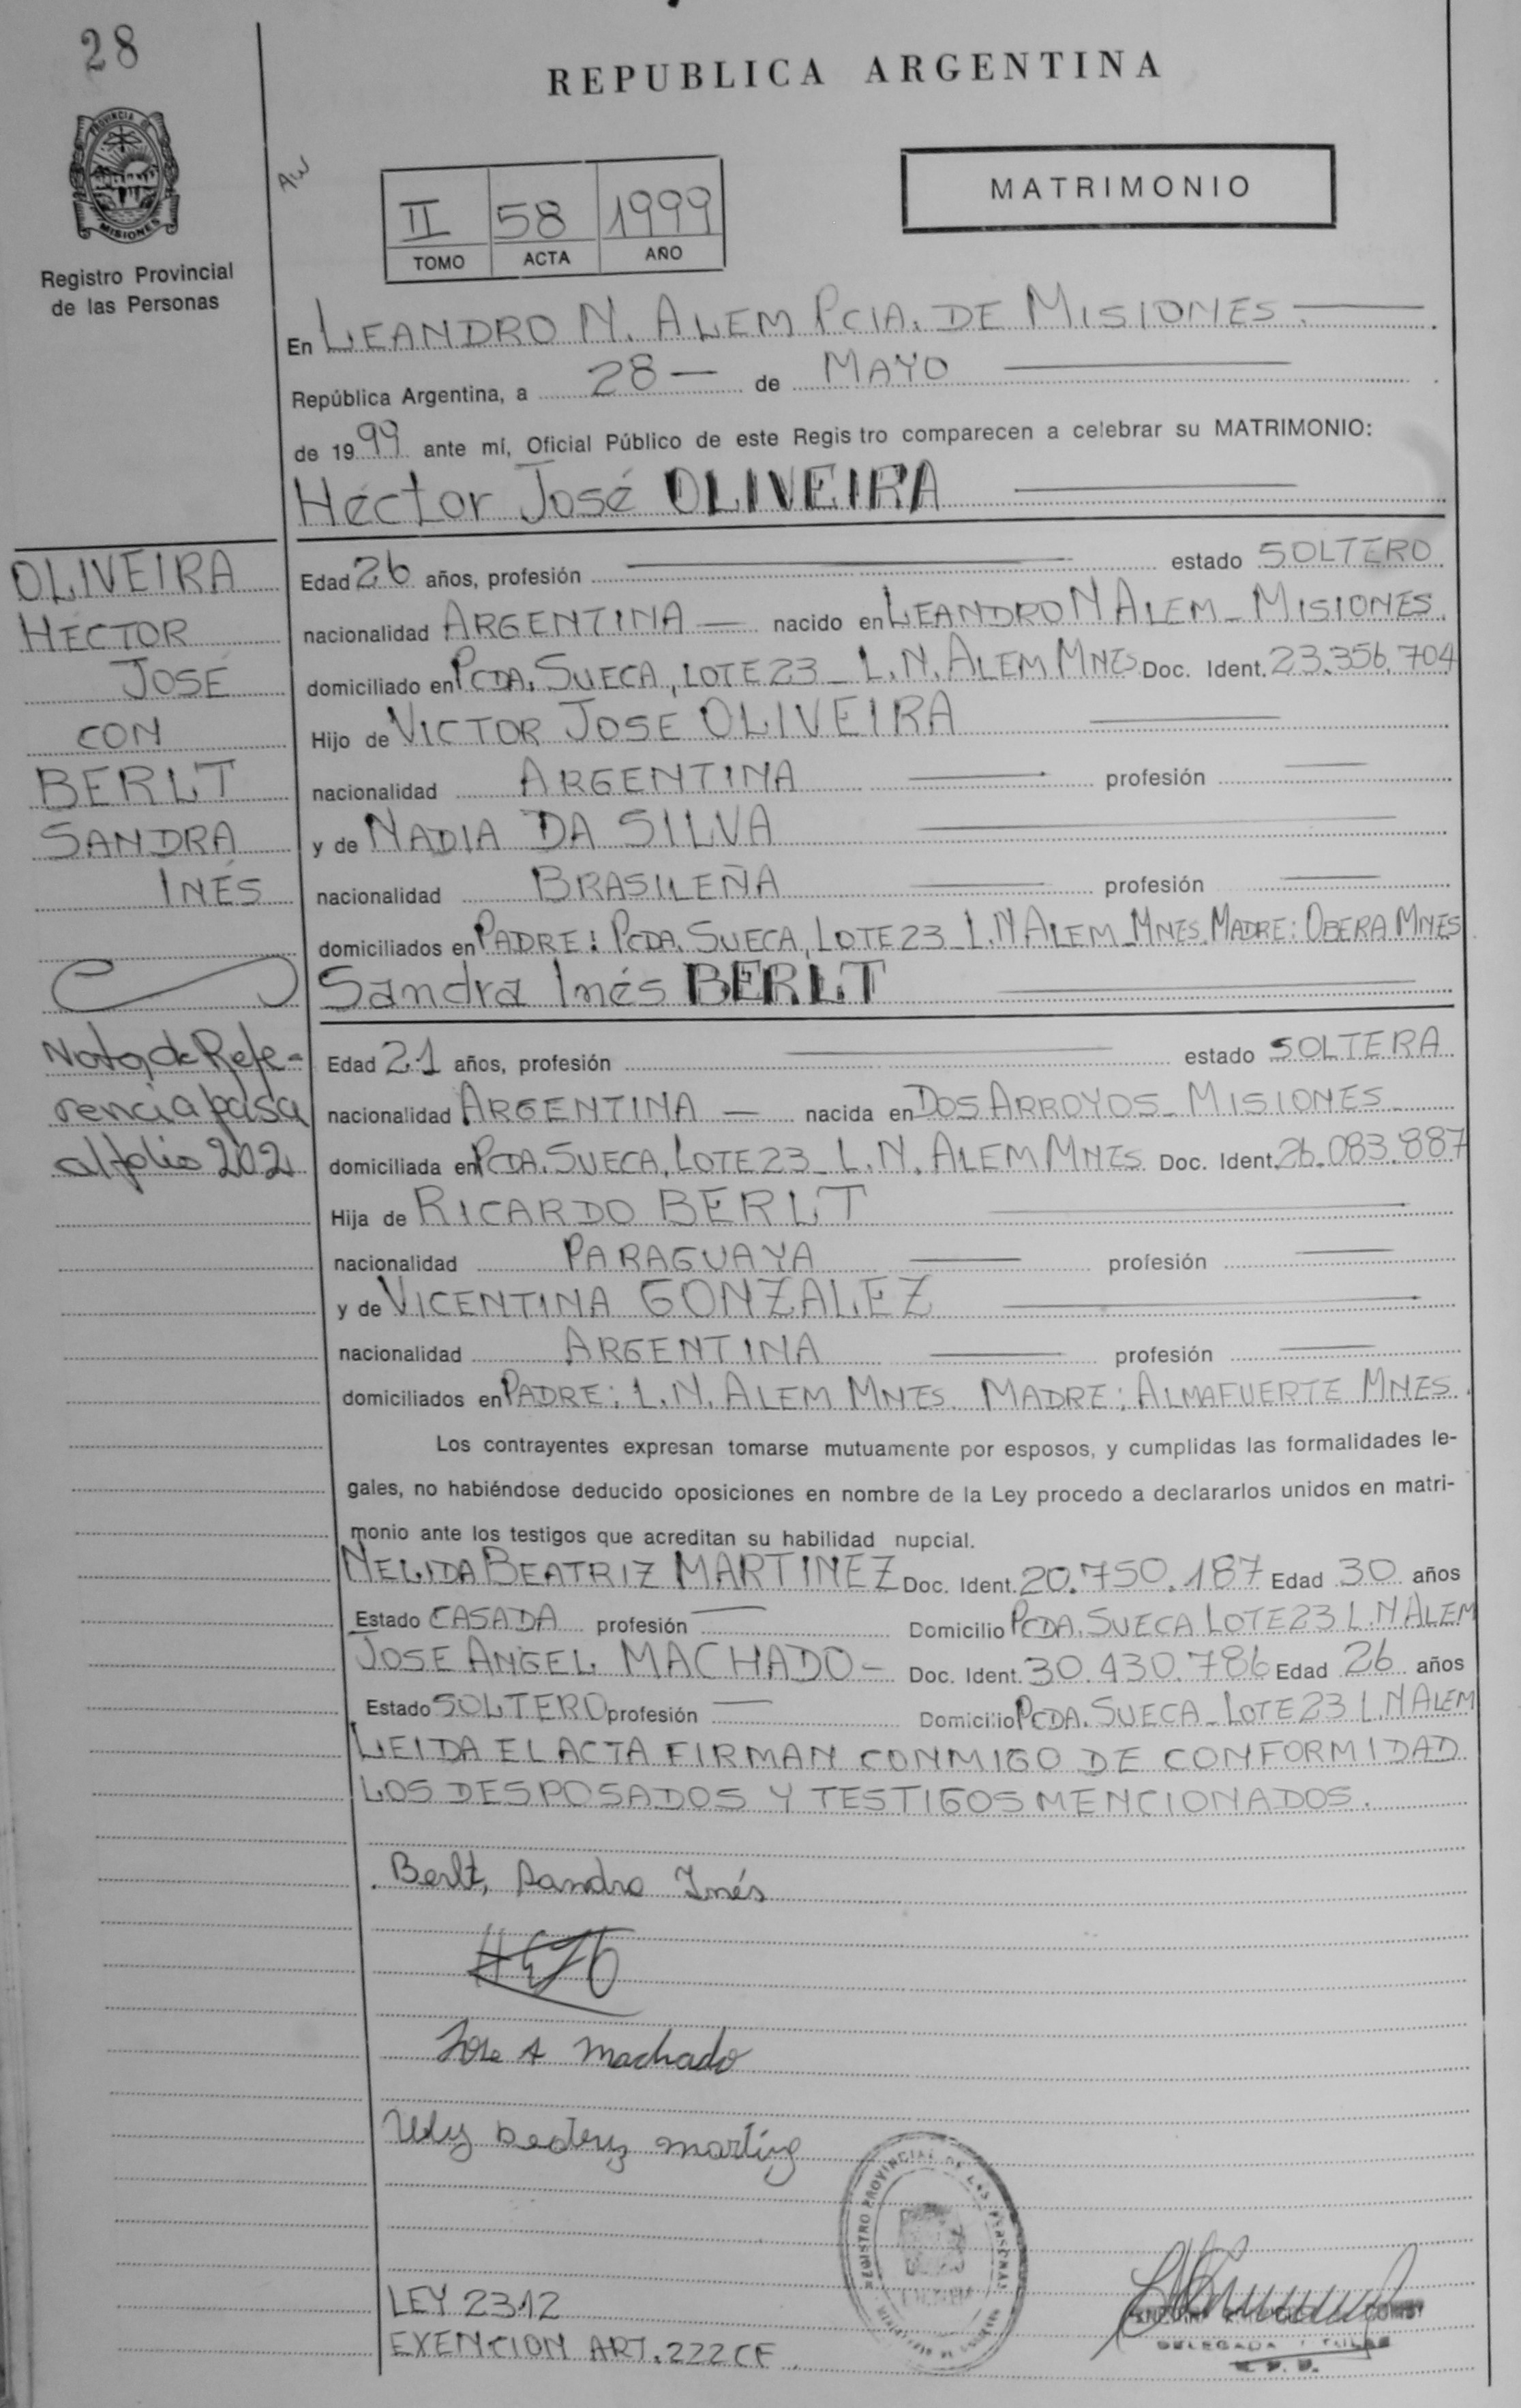 28
REPUBLICA ARGENTINA
PROVINCIA DE
MISIONES
Registro Provincial
de las Personas
AW
II 58 1999
TOMO ACTA AÑO
MATRIMONIO
En LEANDRO N. ALEM PCIA. DE MISIONES.
República Argentina, a 28 de MAYO
de 1999 ante mí, Oficial Público de este Regis tro comparecen a celebrar su MATRIMONIO:
Héctor José OLIVEIRA
OLIVEIRA
HÉCTOR
JOSÉ
CON
BERLT
SANDRA
INÉS
Edad 26 años, profesión estado SOLTERO
nacionalidad ARGENTINA nacido en LEANDRO N ALEM - MISIONES
domiciliado en PCDA. SUECA, LOTE 23 - L.N. ALEM MNES Doc. Ident. 23.356.704
Hijo de VICTOR JOSE OLIVEIRA
nacionalidad ARGENTINA profesión
y de NADIA DA SILVA
nacionalidad BRASILEÑA profesión
domiciliados en PADRE: PCDA. SUECA, LOTE 23 - L.N ALEM - MNES. MADRE: OBERA MNES
Sandra Inés BERLT
Nota de Refe-
rencia pasa
al folio 202
Edad 21 años, profesión estado SOLTERA
nacionalidad ARGENTINA nacida en DOS ARROYOS - MISIONES
domiciliada en PCDA. SUECA, LOTE 23 - L.N. ALEM MNES Doc. Ident. 26.083.887
Hija de RICARDO BERLT
nacionalidad PARAGUAYA profesión
y de VICENTINA GONZALEZ
nacionalidad ARGENTINA profesión
domiciliados en PADRE: L.N. ALEM MNES. MADRE: ALMAFUERTE MNES.
Los contrayentes expresan tomarse mutuamente por esposos, y cumplidas las formalidades le-
gales, no habiéndose deducido oposiciones en nombre de la Ley procedo a declararlos unidos en matri-
monio ante los testigos que acreditan su habilidad nupcial.
NELIDA BEATRIZ MARTINEZ Doc. Ident. 20.750.187 Edad 30 años
Estado CASADA profesión Domicilio PCDA. SUECA LOTE 23 L.N ALEM
JOSE ANGEL MACHADO - Doc. Ident. 30.430.786 Edad 26 años
Estado SOLTERO profesión Domicilio PCDA. SUECA - LOTE 23 L.N ALEM
LEIDA EL ACTA FIRMAN CONMIGO DE CONFORMIDAD
LOS DESPOSADOS Y TESTIGOS MENCIONADOS.
Berlt, Sandra Inés
Jose A Machado
REGISTRO PROVINCIAL DE LAS PERSONAS
LEY 2312
EXENCION ART. 222 CF
DELEGADA